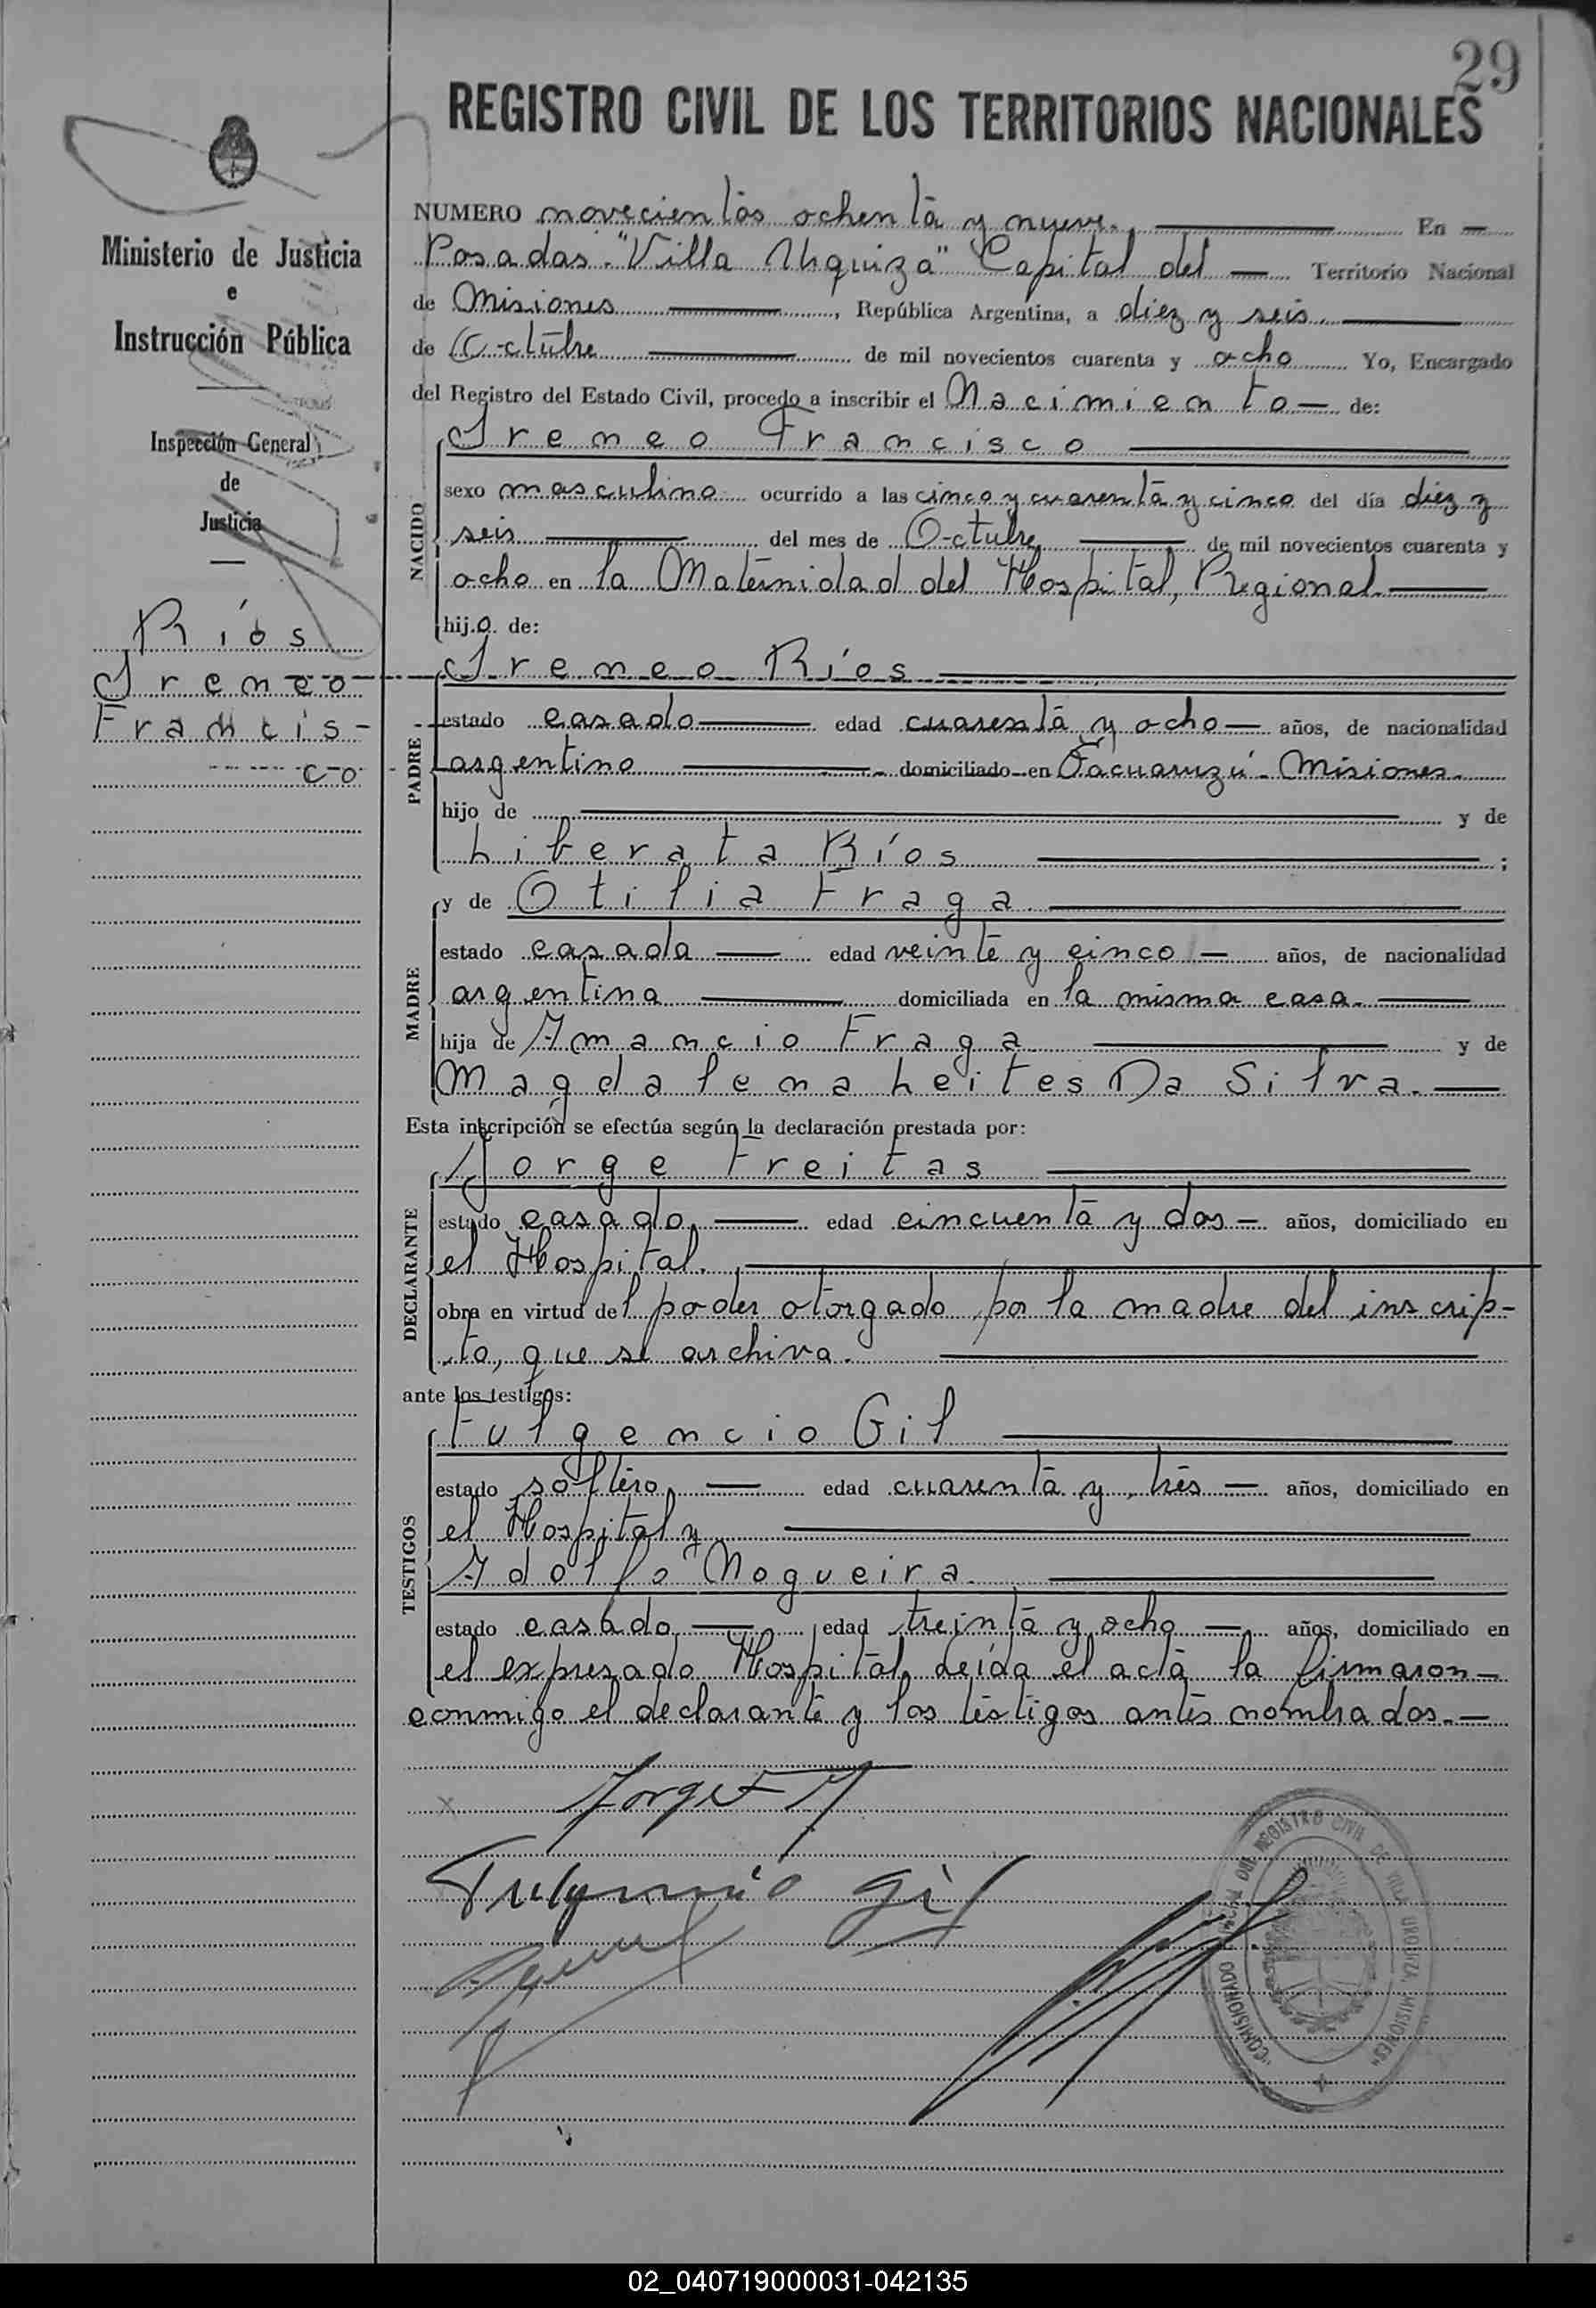 29
REGISTRO CIVIL DE LOS TERRITORIOS NACIONALES
Ministerio de Justicia
e
Instrucción Pública
Inspección General
de
Justicia
Ríos
Ireneo
Francis-
co
NUMERO novecientos ochenta y nueve. En
Posadas "Villa Urquiza" Capital del Territorio Nacional
de Misiones, República Argentina, a diez y seis.
de Octubre de mil novecientos cuarenta y ocho Yo, Encargado
del Registro del Estado Civil, procedo a inscribir el Nacimiento de:
NACIDO
Ireneo Francisco
sexo masculino ocurrido a las cinco y cuarenta y cinco del día diez y
seis del mes de Octubre de mil novecientos cuarenta y
ocho en la Maternidad del Hospital, Regional.
hijo de:
PADRE
Ireneo Ríos
estado casado edad cuarenta y ocho años, de nacionalidad
argentino domiciliado en Tacuaruzú - Misiones.
hijo de y de
Liberata Ríos ;
MADRE
y de Otilia Fraga.
estado casada edad veinte y cinco años, de nacionalidad
argentina domiciliada en la misma casa.
hija de Amancio Fraga y de
Magdalena Leites Da Silva.
Esta inscripción se efectúa según la declaración prestada por:
DECLARANTE
Jorge Freitas
estado casado edad cincuenta y dos años, domiciliado en
el Hospital.
obra en virtud del poder otorgado por la madre del inscrip-
to, que se archiva.
ante los testigos:
TESTIGOS
Fulgencio Gil
estado soltero edad cuarenta y tres años, domiciliado en
el Hospital y
Adolfo Nogueira.
estado casado edad treinta y ocho años, domiciliado en
el expresado Hospital. Leída el acta la firmaron
conmigo el declarante y los testigos antes nombrados.
Jorge F
Fulgencio Gil
"COMISIONADO DEL REGISTRO CIVIL DE VILLA URQUIZA, MISIONES"
02_040719000031-042135